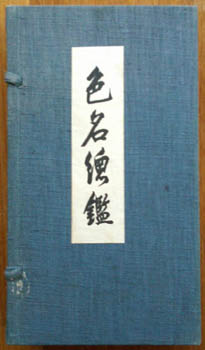 色名總鑑